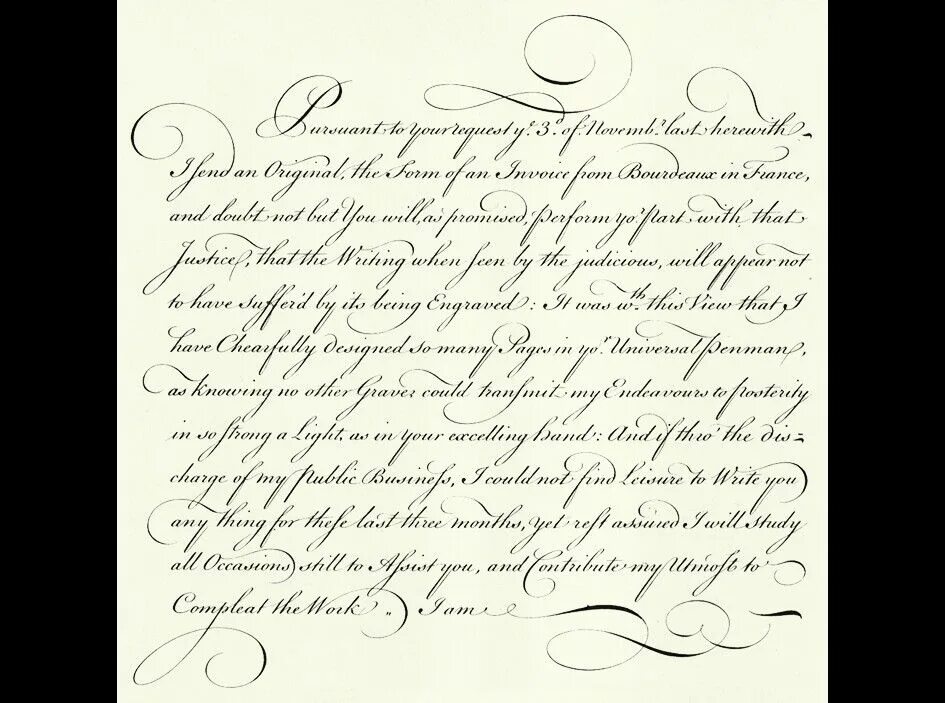 Pursuant to your request yᵉ 3ᵈ of Novembʳ last herewith
I send an Original, the Form of an Invoice from Bourdeaux in France,
and doubt not but You will, as promised, Perform yoʳ part with that
Justice, that the Writing when seen by the judicious, will appear not
to have Suffer'd by its being Engraved: It was wᵗʰ this View that I
have Chearfully designed so many Pages in yoʳ Universal Penman,
as knowing no other Graver could transmit my Endeavours to posterity
in so strong a Light, as in your excelling hand: And if thro' the dis=
charge of my Public Business, I could not find Leisure to Write you
any thing for these last three months, yet rest assured I will Study
all Occasions still to Assist you, and Contribute my Utmost to
Compleat the Work „ I am